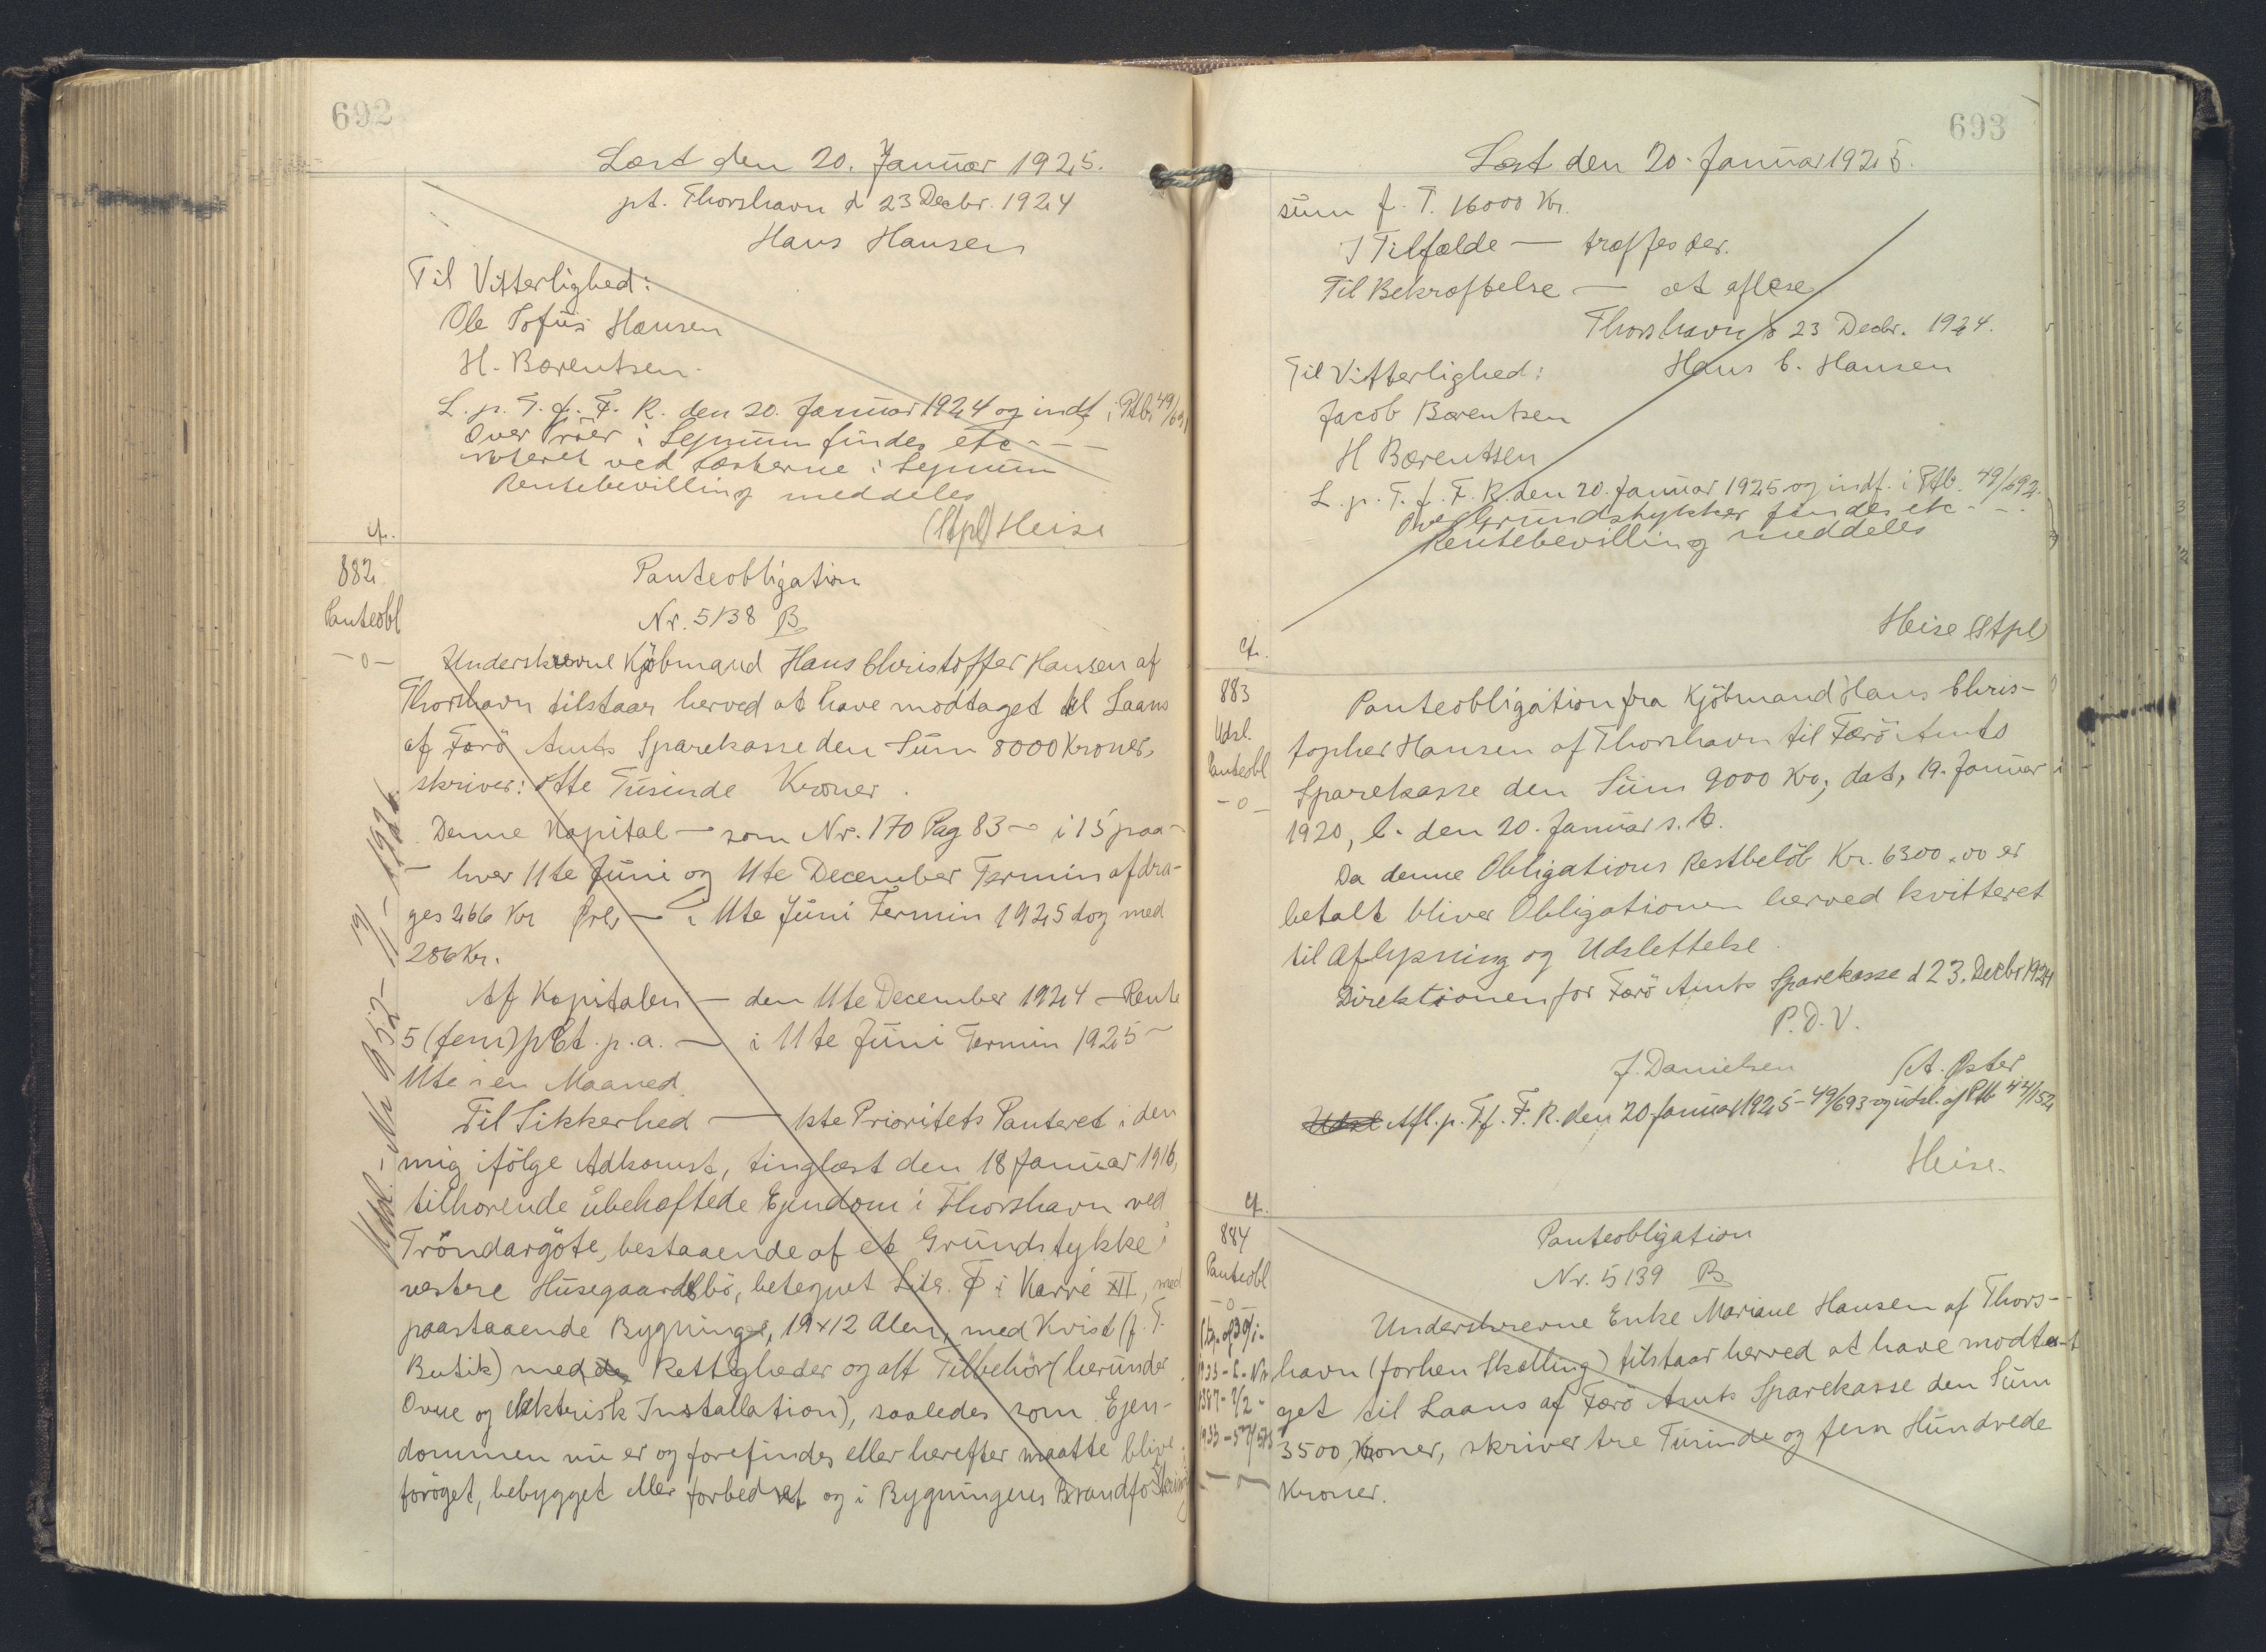 692
Læst den 20. Januar 1925.
pt. Thorshavn d 23 Decbr. 1924
Hans Hansen
Til Vitterlighed:
Ole Sofus Hansen
H. Bærentsen.
L. p. T. f. F. R. den 20. Januar 1924 og indf. i Ptb. 49/691
Over
findes etc - - -
noteret ved
Rentebevilling meddeles
(Stpl) Heise
cf.
882
Panteobl
-o-
Panteobligation
Nr. 5138 B
Underskrevne Kjøbmand Hans Christoffer Hansen af
Thorshavn tilstaar herved at have modtaget til Laans
af Færö Amts Sparekasse den Sum 8000 Kroner,
skriver: Otte Tusinde Kroner.
Denne Kapital — som Nr. 170 Pag 83 — i 15 paa-
— hver 11te Juni og 11te December Termin afdra-
ges 266 Kr — i 11te Juni Termin 1925 dog med
286 Kr.
Af Kapitalen — den 11te December 1924 — Rente
5 (fem) pCt. p.a. — i 11te Juni Termin 1925 —
11te i en Maaned.
Til Sikkerhed — 1ste Prioritets Panteret i den
mig ifölge Adkomst, tinglæst den 18 Januar 1916,
tilhørende ubehæftede Ejendom i Thorshavn ved
Tröndargöte, bestaaende af et Grundstykke i
vestre Husegaardsbö, betegnet Litr. Ø i Karré XII, med
paastaaende Bygning, 19 x 12 Alen, med Kvist (f. T.
Butik) med Rettigheder og alt Tilbehör (herunder
Ovne og elektrisk Installation), saaledes som Ejen-
dommen nu er og forefindes eller herefter maatte blive
forøget, bebygget eller forbedret og i Bygningens Brandforsikring
693
Læst den 20. Januar 1925.
sum f. T. 16000 Kr.
I Tilfælde — træffes der.
Til Bekræftelse — at aflæse
Thorshavn d 23 Decbr. 1924.
Hans C. Hansen
Til Vitterlighed:
Jacob Bærentsen
H Bærentsen
L. p. T. f. F. R. den 20. Januar 1925 og indf. i Ptb. 49/692.
Over Grundstykker findes etc - - -
Rentebevilling meddeles
Heise (Stpl)
cf.
883
Udsl.
Panteobl
-o-
Panteobligation fra Kjöbmand Hans Chris-
topher Hansen af Thorshavn til Færö Amts
Sparekasse den Sum 9000 Kr, dat. 19. Januar
1920, l. den 20. Januar s. A.
Da denne Obligations Restbelöb Kr. 6300.00 er
betalt bliver Obligationen herved kvitteret
til Aflysning og Udslettelse.
Direktionen for Færö Amts Sparekasse d 23. Decbr 1924
P. D. V.
J. Danielsen /A. Øster
Afl. p. T. f. F. R. den 20 Januar 1925 - 49/693 og udsl. af Ptb 44/152
Heise.
cf.
884
Panteobl
-o-
Panteobligation
Nr. 5139 B
Underskrevne Enke Mariane Hansen af Thors-
havn (forhen Skælling) tilstaar herved at have modta-
get til Laans af Færö Amts Sparekasse den Sum
3500 Kroner, skriver tre Tusinde og fem Hundrede
Kroner.